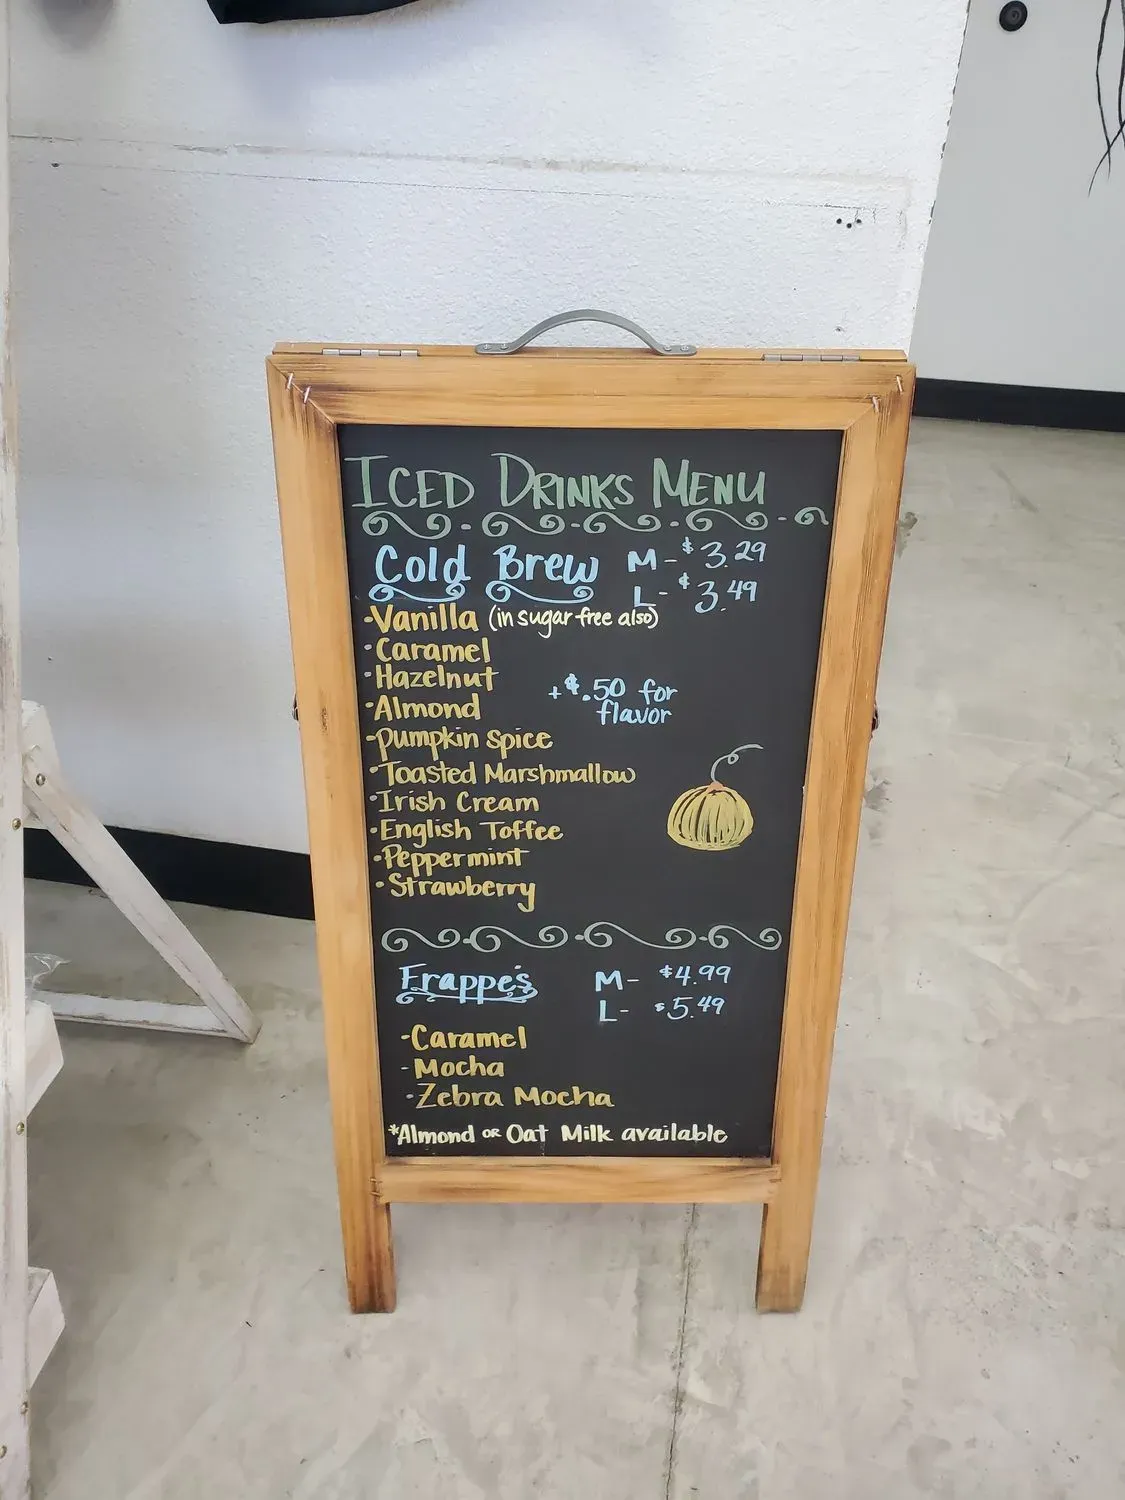 ICED DRINKS MENU
Cold Brew M - $3.29
L - $3.49
-Vanilla (in sugar free also)
·Caramel
·Hazelnut
·Almond
+$.50 for
flavor
-Pumpkin Spice
·Toasted Marshmallow
·Irish Cream
·English Toffee
·Peppermint
·Strawberry
Frappe's M - $4.99
L - $5.49
·Caramel
-Mocha
·Zebra Mocha
*Almond or Oat Milk available